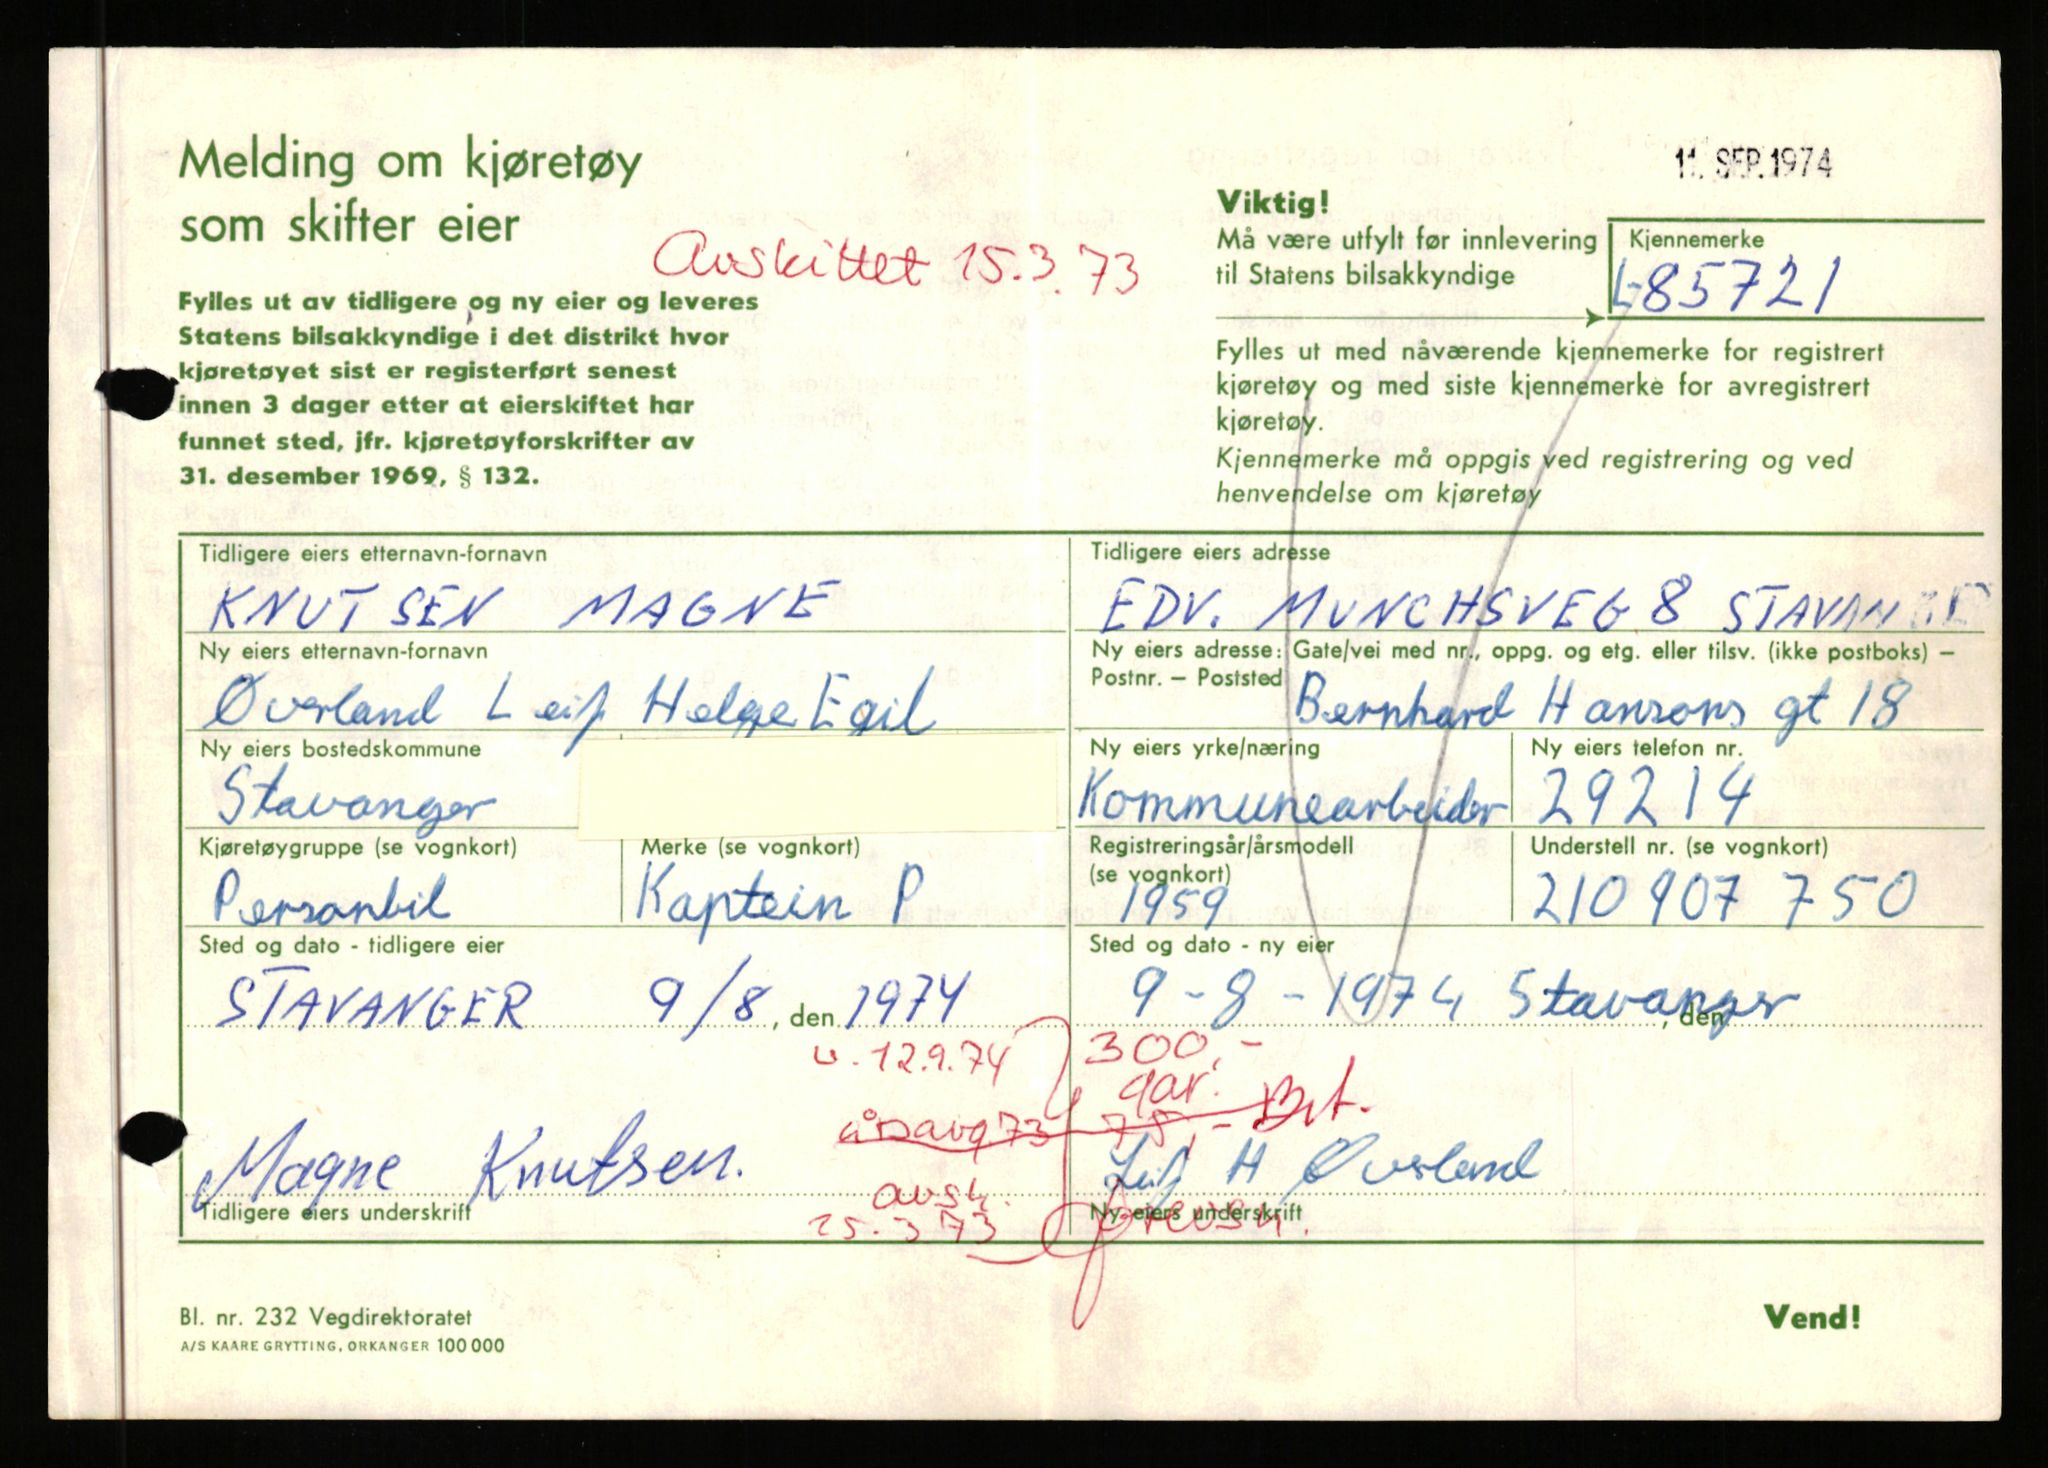 Melding om kjøretøy
som skifter eier
Avskiltet 15.3.73
Fylles ut av tidligere og ny eier og leveres
Statens bilsakkyndige i det distrikt hvor
kjøretøyet sist er registerført senest
innen 3 dager etter at eierskiftet har
funnet sted, jfr. kjøretøyforskrifter av
31. desember 1969, § 132.
11. SEP. 1974
Viktig!
Må være utfylt før innlevering
til Statens bilsakkyndige
Kjennemerke
L-85721
Fylles ut med nåværende kjennemerke for registrert
kjøretøy og med siste kjennemerke for avregistrert
kjøretøy.
Kjennemerke må oppgis ved registrering og ved
henvendelse om kjøretøy
Tidligere eiers etternavn-fornavn
KNUTSEN MAGNE
Tidligere eiers adresse
EDV. MUNCHSVEG 8 STAVANGER
Ny eiers etternavn-fornavn
Øverland Leif Helge Egil
Ny eiers adresse: Gate/vei med nr., oppg. og etg. eller tilsv. (ikke postboks) –
Postnr. – Poststed
Bernhard Hansons gt 18
Ny eiers bostedskommune
Stavanger
Ny eiers yrke/næring
Kommunearbeider
Ny eiers telefon nr.
29214
Kjøretøygruppe (se vognkort)
Personbil
Merke (se vognkort)
Kaptein P
Registreringsår/årsmodell
(se vognkort)
1959
Understell nr. (se vognkort)
210 907 750
Sted og dato - tidligere eier
STAVANGER 9/8, den 1974
Sted og dato - ny eier
9-8-1974 Stavanger, den
v. 12.9.74
300,-
gar.
årsavg 73 78,-
Magne Knutsen.
Leif H Øverland
avsk.
15.3 73
Tidligere eiers underskrift
Ny eiers underskrift
Bl. nr. 232 Vegdirektoratet
A/S KAARE GRYTTING, ORKANGER 100 000
Vend!